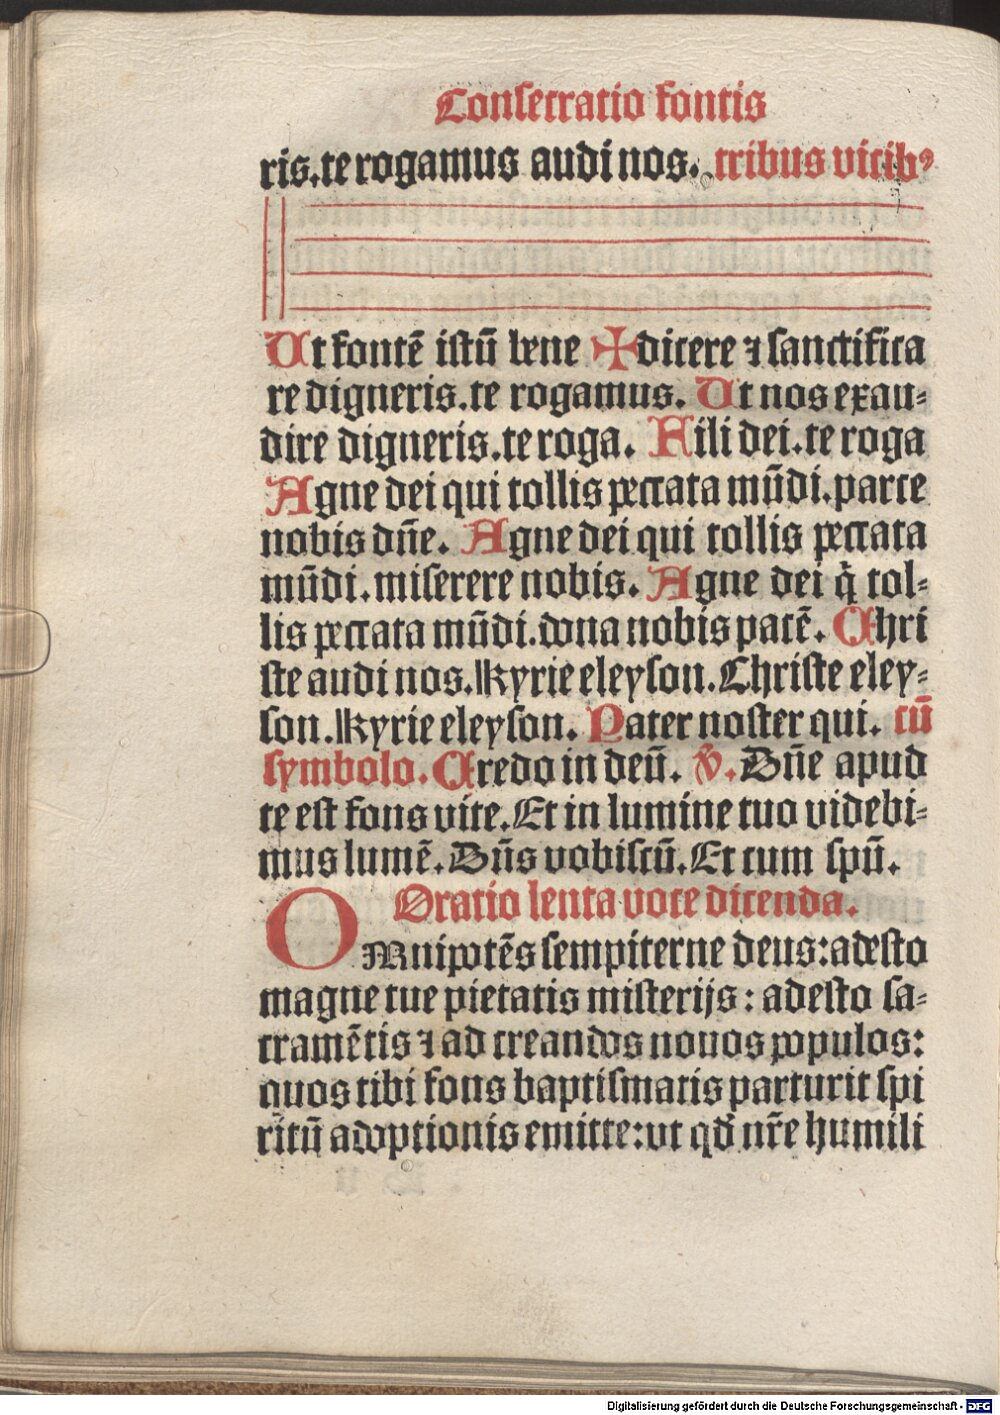 Consecratio fontis
ris.te rogamus audi nos. tribus vicibꝰ
Ut fontē istū bene ✠ dicere ⁊ sanctifica
re digneris.te rogamus. Ut nos exau⸗
dire digneris.te roga. Fili dei.te roga
Agne dei qui tollis peccata mūdi.parce
nobis dn̄e. Agne dei qui tollis peccata
mūdi.miserere nobis. Agne dei q̇ tol⸗
lis peccata mūdi.dona nobis pacē. Chri
ste audi nos.Kyrie eleyson.Christe eley⸗
son.Kyrie eleyson. Pater noster qui. cū
symbolo. Credo in deū. ℣. Dn̄e apud
te est fons vite.Et in lumine tuo videbi⸗
mus lumē.Dn̄s vobiscū.Et cum spū.
Oratio lenta voce dicenda.
OMnipotēs sempiterne deus:adesto
magne tue pietatis misterijs: adesto sa⸗
cramētis ⁊ ad creandos novos populos:
quos tibi fons baptismatis parturit spi
ritū adoptionis emitte:vt qđ nr̄e humili
Digitalisierung gefördert durch die Deutsche Forschungsgemeinschaft - DFG